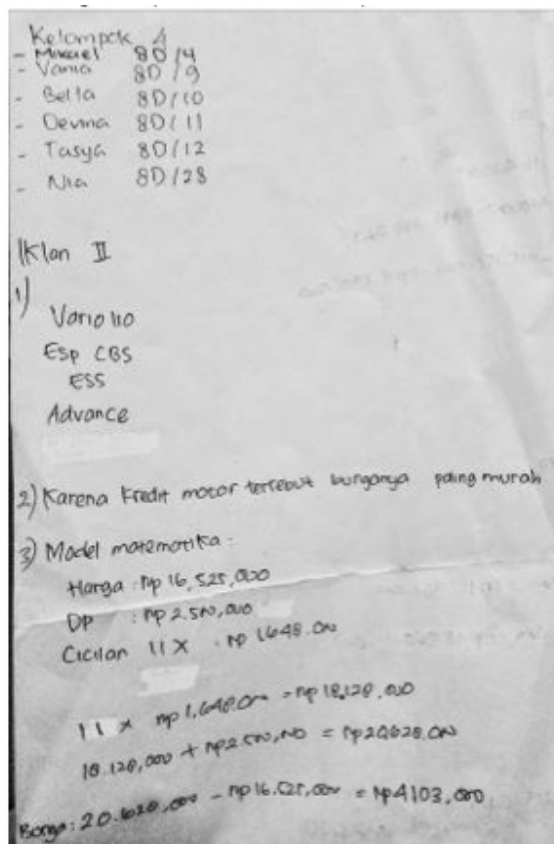 Kelompok 4
- Mikael 8D/4
- Vania 8D/9
- Bella 8D/10
- Devina 8D/11
- Tasya 8D/12
- Nia 8D/28
Iklan II
1)
Vario 110
Esp CBS
ESS
Advance
2) Karena kredit motor tersebut bunganya paling murah
3) Model matematika:
Harga : Rp 16,525,000
DP : Rp 2.500,000
Cicilan 11 X : Rp 1.648.000
11 x Rp 1,648.000 = Rp 18,128,000
18.128,000 + Rp 2.500,000 = Rp 20.628.000
Bonga: 20.628,000 - Rp 16.525,000 = Rp 4103,000